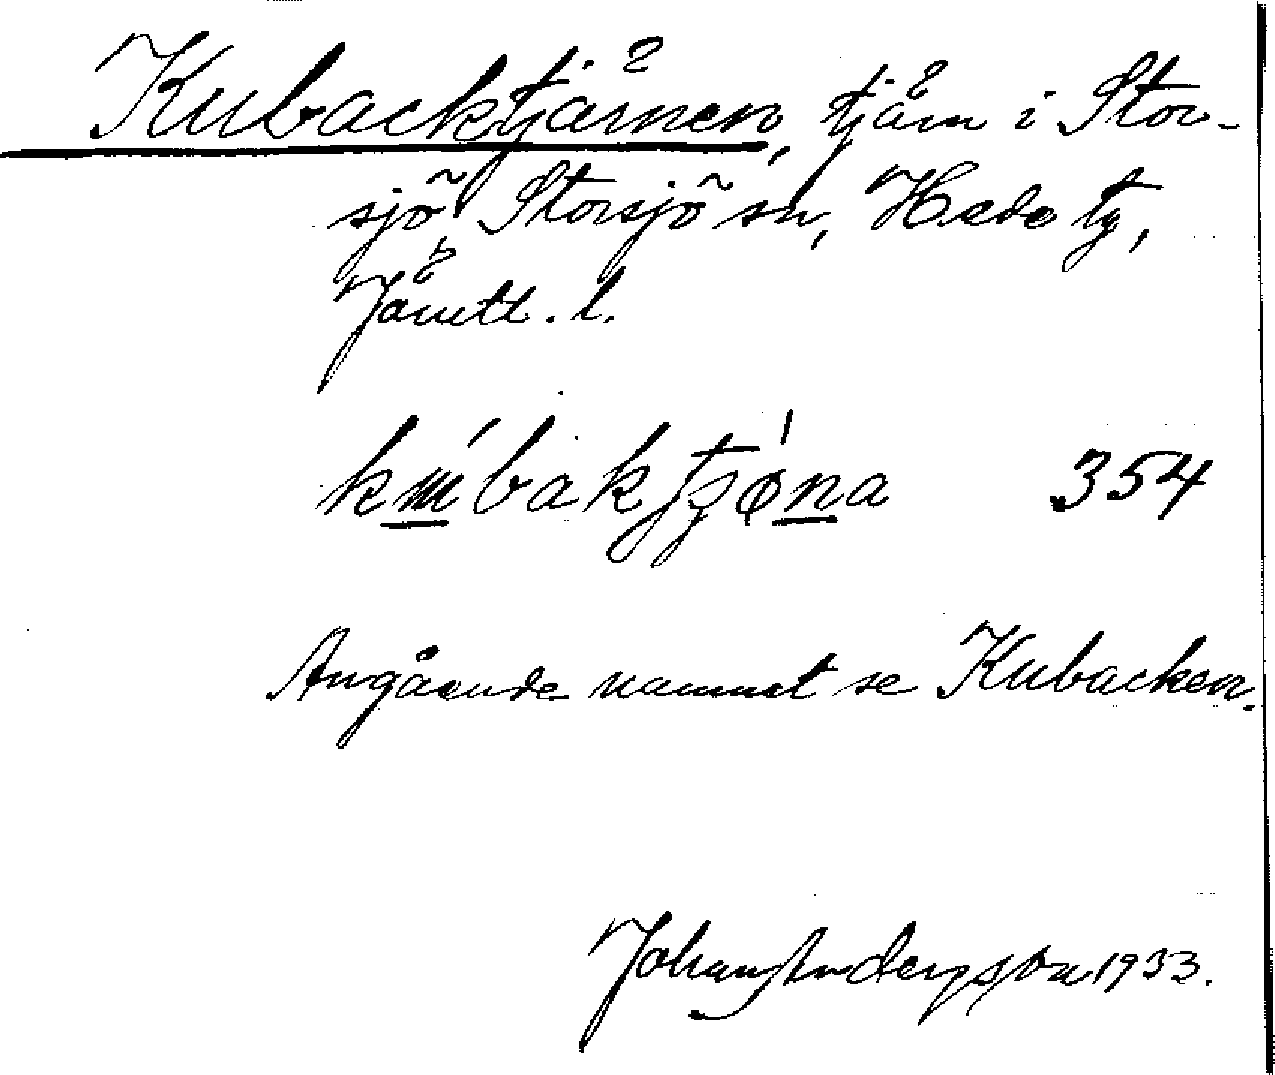 Kubacktjärnen, tjärn i Stor-
sjö, Storsjö sn, Hede tg,
Jämtl. l.
354
Angående namnet se Kubacken.
Johan Andersson 1933.